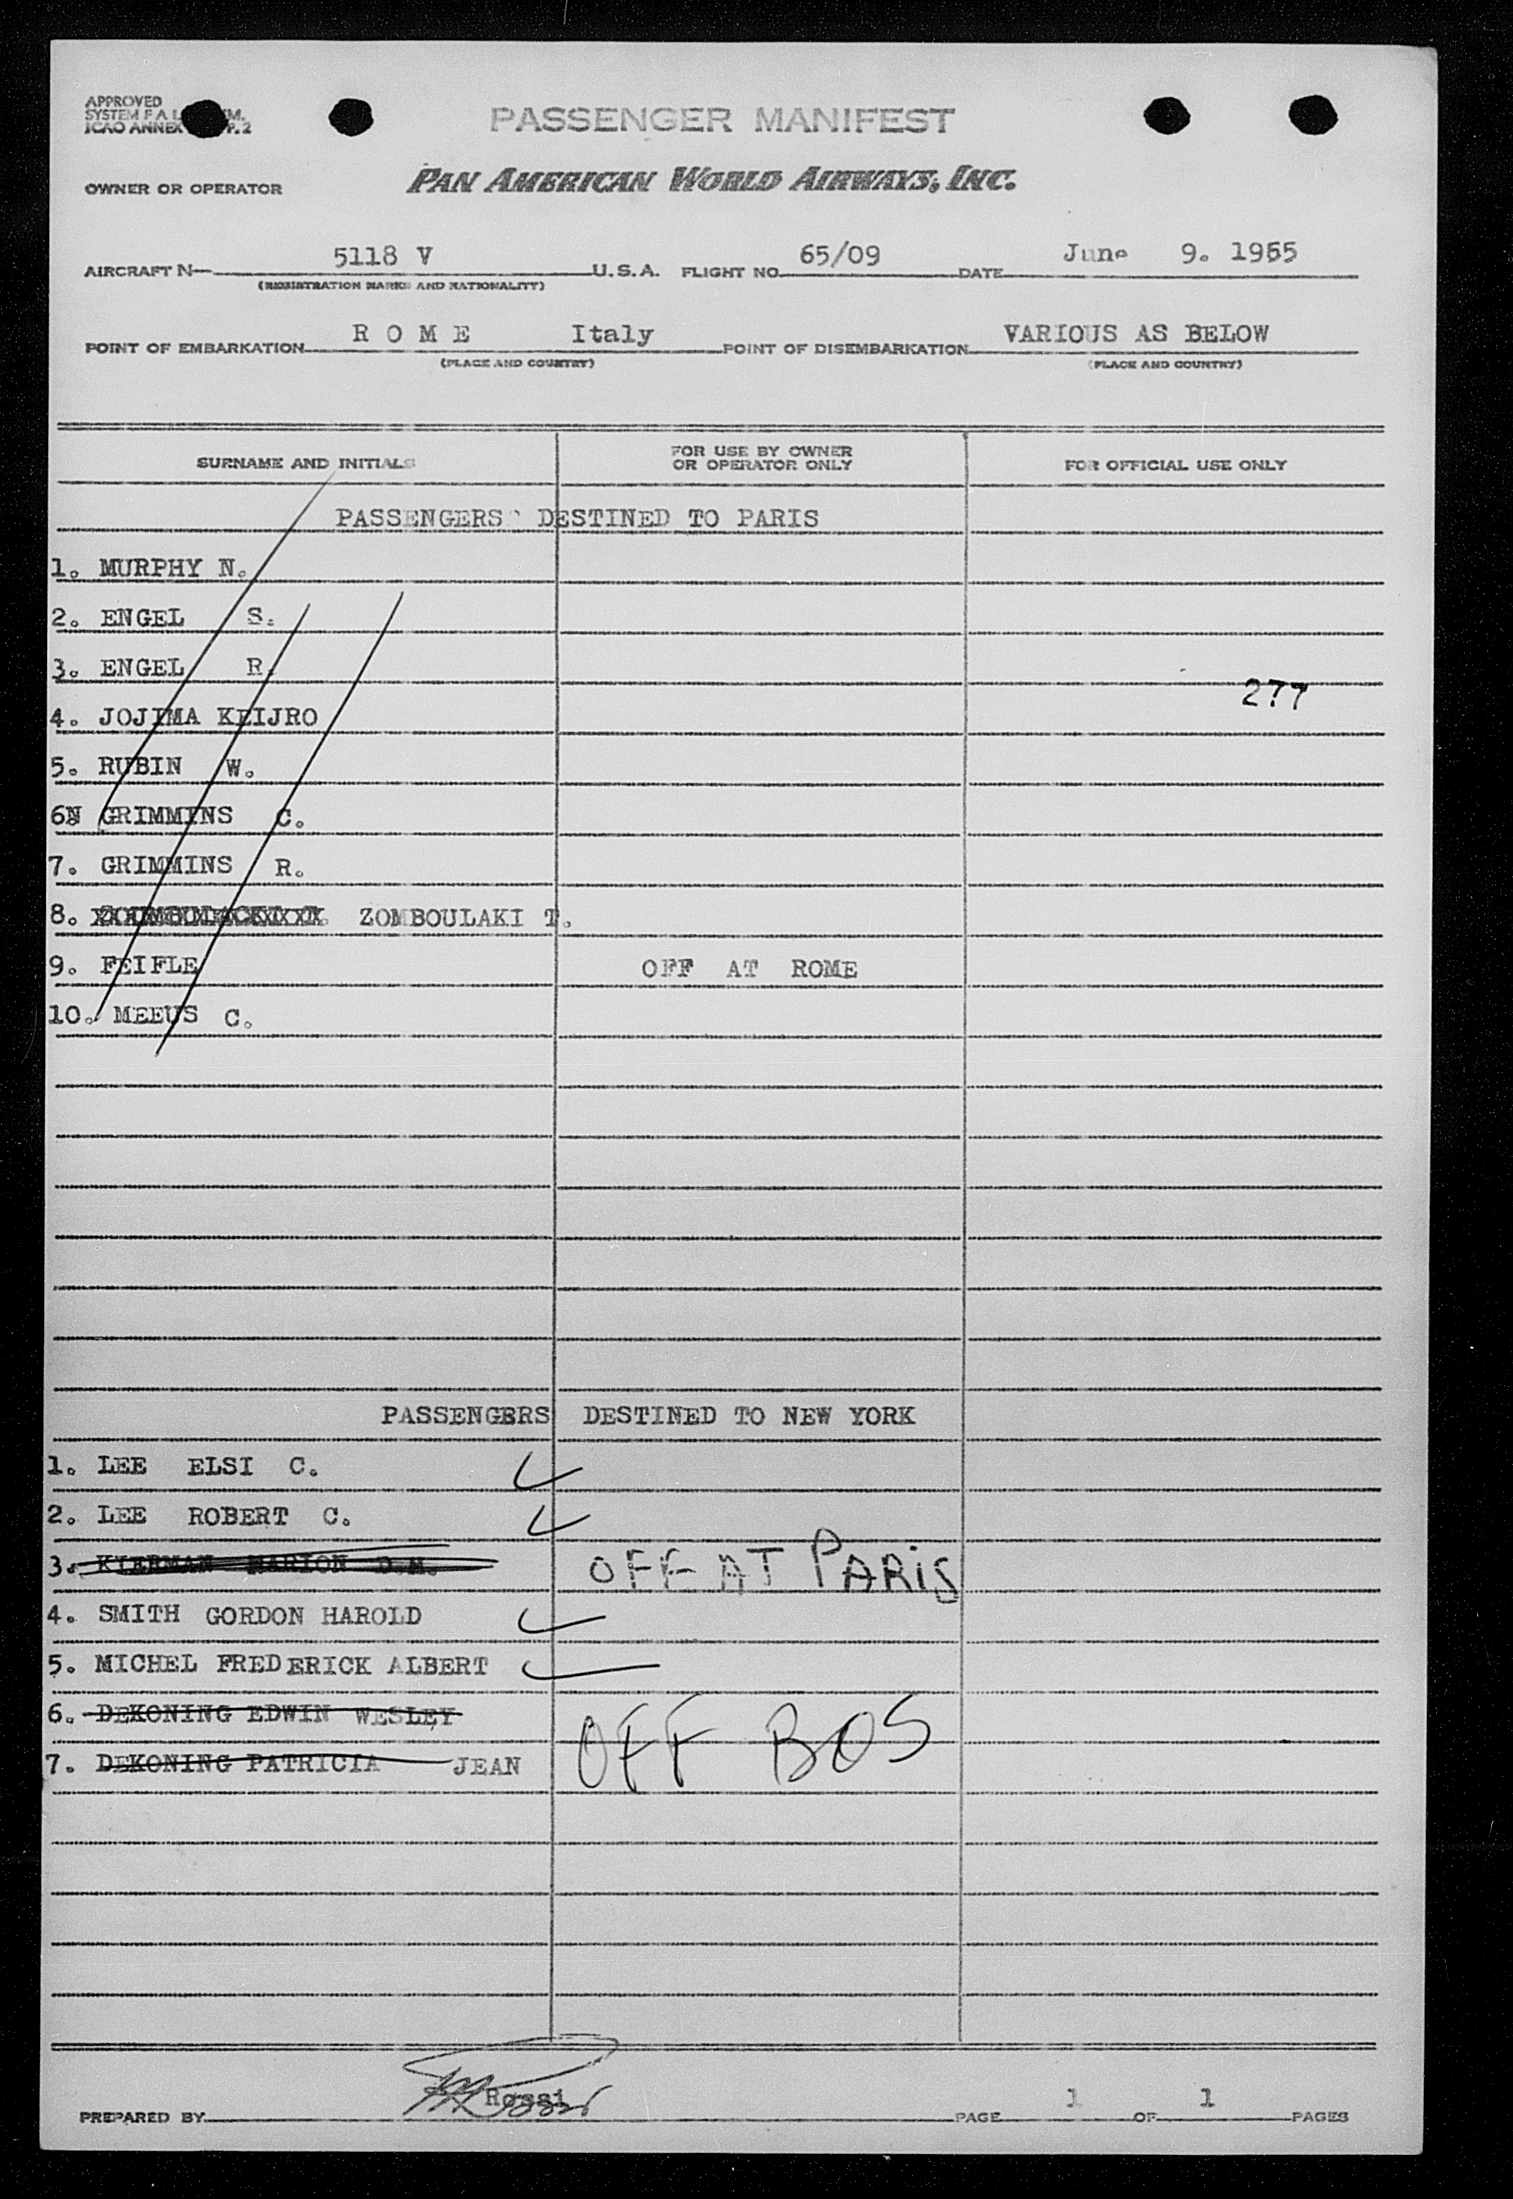 APPROVED
SYSTEM F A L M.
ICAO ANNEX P. 2
PASSENGER MANIFEST
OWNER OR OPERATOR PAN AMERICAN WORLD AIRWAYS, INC.
AIRCRAFT N— 5118 V U.S.A. FLIGHT NO. 65/09 DATE June 9. 1955
(REGISTRATION MARKS AND NATIONALITY)
POINT OF EMBARKATION R O M E Italy POINT OF DISEMBARKATION VARIOUS AS BELOW
(PLACE AND COUNTRY) (PLACE AND COUNTRY)
SURNAME AND INITIALS FOR USE BY OWNER OR OPERATOR ONLY FOR OFFICIAL USE ONLY
PASSENGERS DESTINED TO PARIS
1. MURPHY N.
2. ENGEL S.
3. ENGEL R.
277
4. JOJIMA KEIJRO
5. RUBIN W.
6N GRIMMINS C.
7. GRIMMINS R.
8. ZOMBOULAKI T.
9. FEIFLE OFF AT ROME
10. MEEUS C.
PASSENGERS DESTINED TO NEW YORK
1. LEE ELSI C.
2. LEE ROBERT C.
3. KIERMAN MARION D.M. OFF AT PARIS
4. SMITH GORDON HAROLD
5. MICHEL FREDERICK ALBERT
6. DEKONING EDWIN WESLEY
7. DEKONING PATRICIA JEAN OFF BOS
PREPARED BY Rossi PAGE 1 OF 1 PAGES